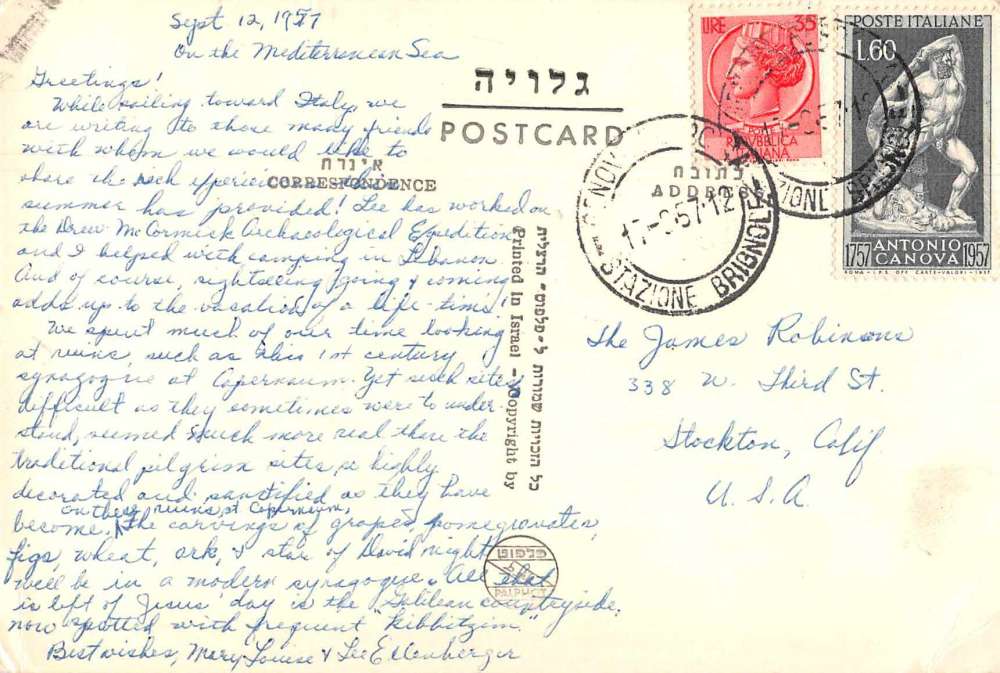 Sept 12, 1957
On the Mediterranean Sea
Greetings!
While sailing toward Italy, we
are writing to those many friends
with whom we would like to
share the rich experiences this
summer has provided! Lee has worked on
the Drew McCormick Archaeological Expedition
and I helped with camping in Lebanon.
And of course, sightseeing going & coming
adds up to the vacation of a life-time!
We spent much of our time looking
at ruins, such as this 1st century
synagogue at Capernaum. Yet such sites,
difficult as they sometimes were to under-
stand, seemed much more real than the
traditional pilgrim sites, so highly
decorated and sanctified as they have
on these ruins at Capernaum,
become. The carvings of grapes, pomegranates,
figs, wheat, ark, & star of David might
well be in a modern synagogue. All that
is left of Jesus' day is the Galilean countryside,
now spotted with frequent "kibbitzim."
Best wishes, Mary Louise & Lee Ellenberger
גלויה
POSTCARD
איגרת
CORRESPONDENCE
כתובת
ADDRESS
כל הזכויות שמורות ל־פלפוט־ הרצליה
Printed in Israel — Copyright by
פלפוט
PALPHOT
LIRE 35
REPVBBLICA
ITALIANA
POSTE ITALIANE
L.60
1757 ANTONIO 1957
CANOVA
ROMA - I.P.S. OFF. CARTE-VALORI - 1957
17-9 57 12
STAZIONE BRIGNOLE
STAZIONE BRIGNOLE
The James Robinsons
338 W. Third St.
Stockton, Calif
U.S.A.